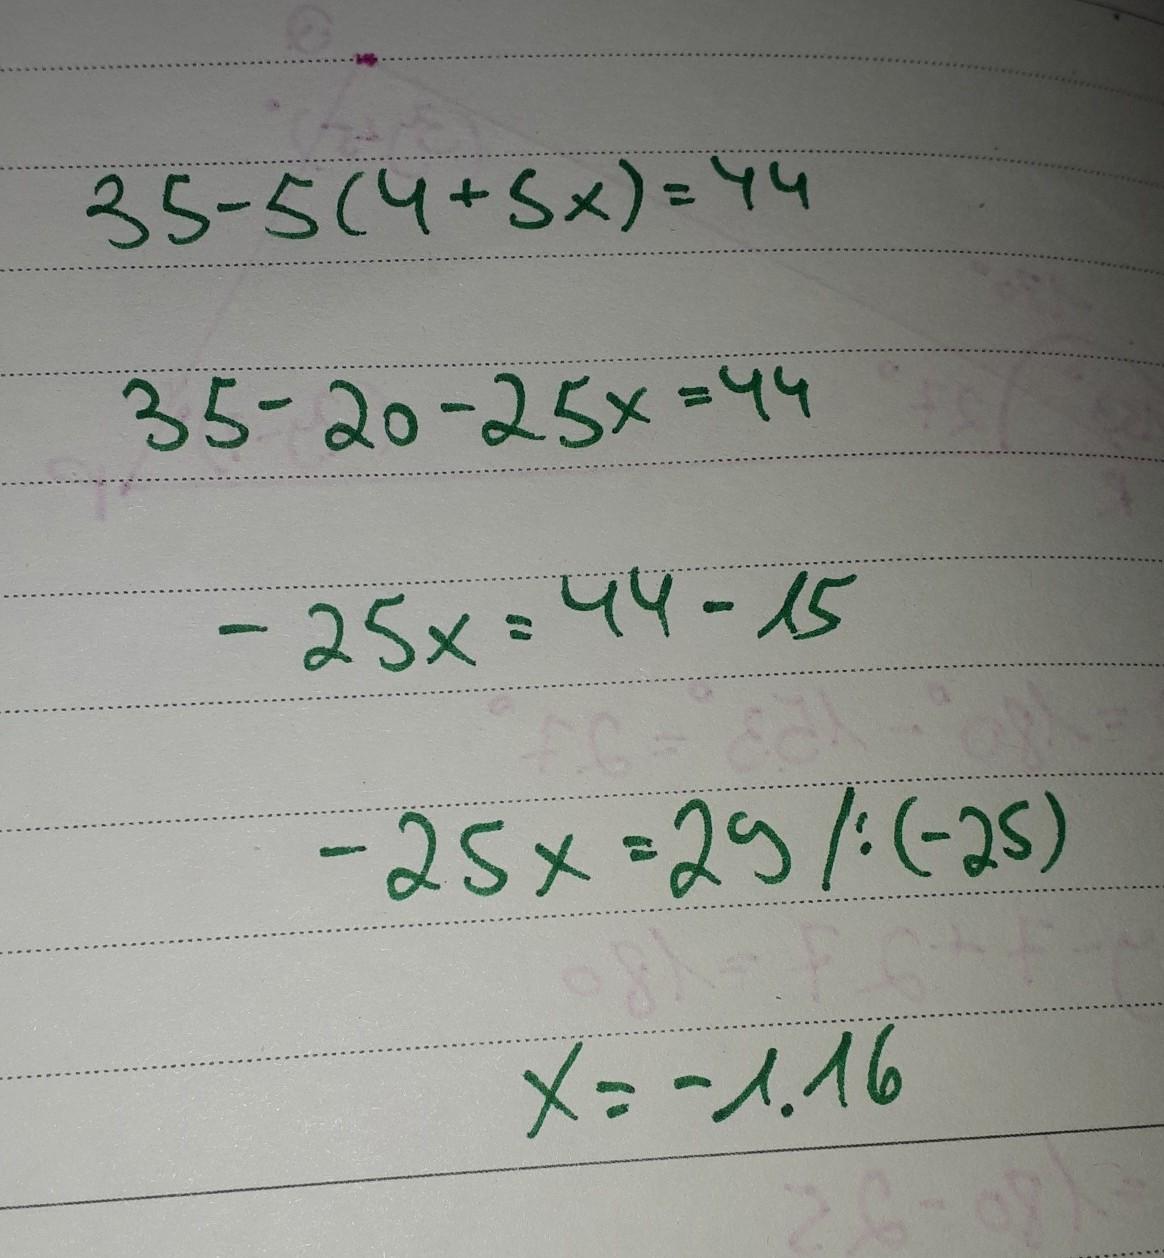 35-5(4+5x)=44
35-20-25x=44
-25x=44-15
-25x=29/:(-25)
x=-1.16